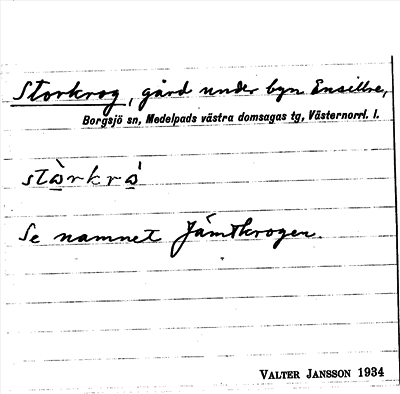 Storkrog, gård under byn Ensillre,
Borgsjö sn, Medelpads västra domsagas tg, Västernorrl. l.
stàrkrá
Se namnet Jämtkrogen.
VALTER JANSSON 1934